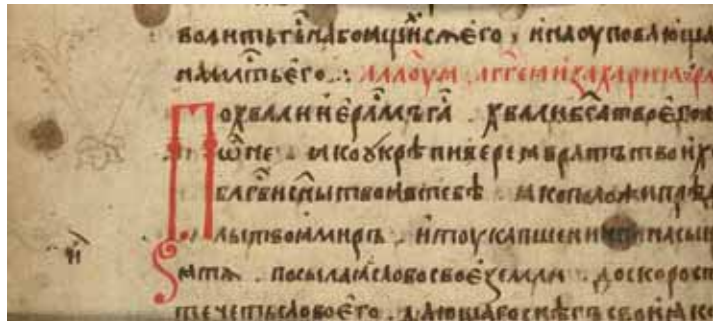 волитьг҃ънабоѧщи́хсѧе́го , и́наоуповаю́ща
намлⷭ҇тье́го .: а́ллоу́ꙗ . а́гге́ѧизаха́рии҆нъ
Похвалиие҆рⷭ҇лмъг҃а . хвалиб҃ататвое́гом
сїѡ҆не ꙗкоукрѣпиверем вратъ твои́х
бл҃гвисн҃ытвоѧвтебѣ . ꙗкоположипредѣ
лытвоѧмиръ . и҆тоукапшенична насы
и҃
матѧ . посылаꙗсловосвое҆земли . доскорост
течетьсловое҆го . даю́щаго снѣгъ свои҆ꙗко